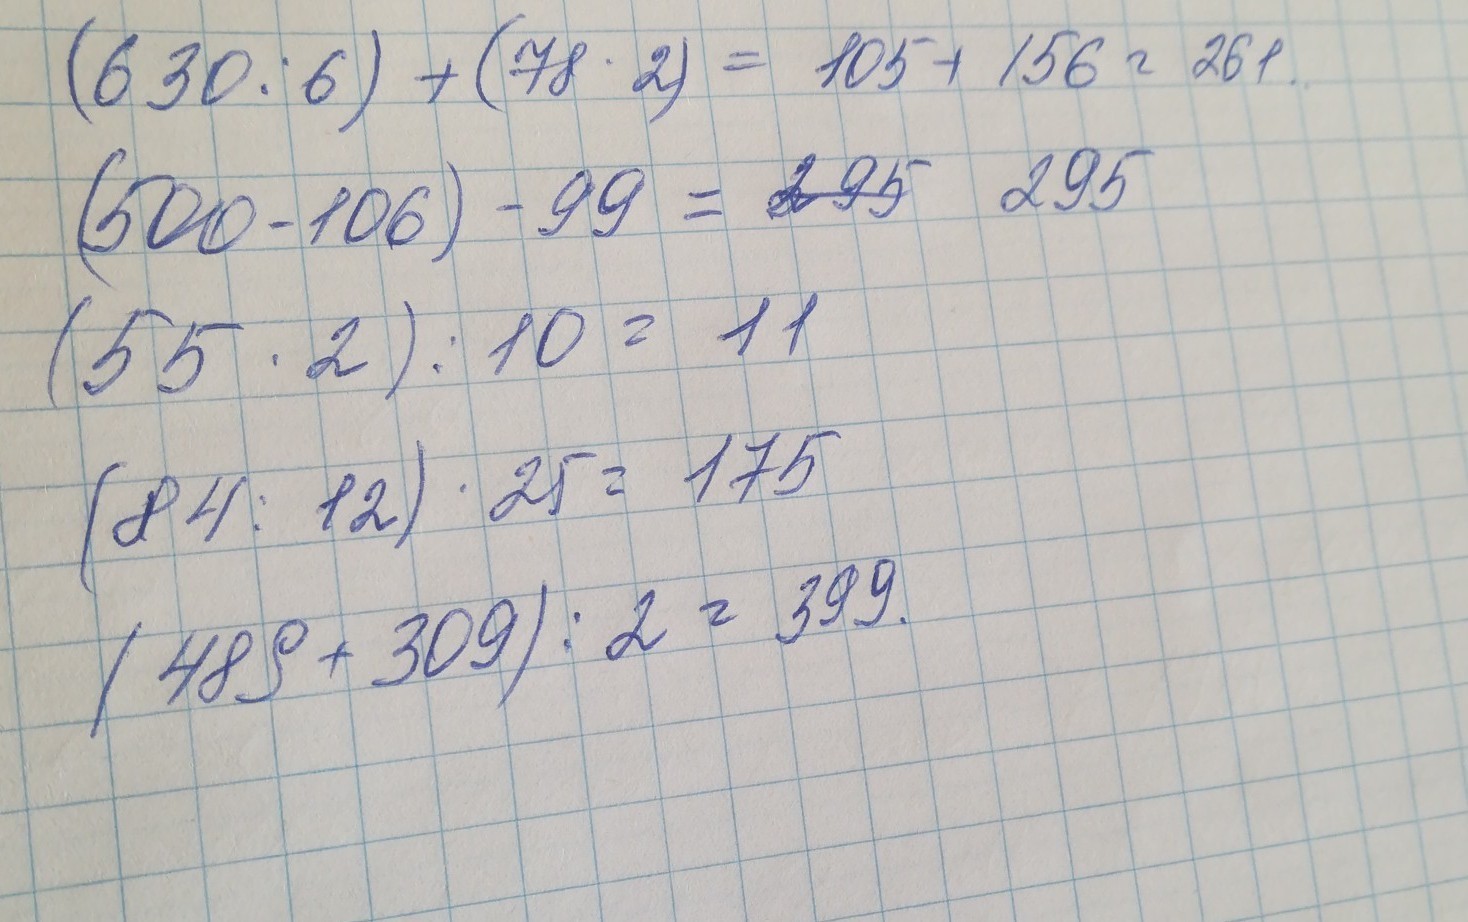 (630:6)+(78·2)= 105+156=261.
(500-106)-99= 295 295
(55·2):10=11
(84:12)·25=175
(489+309):2=399.